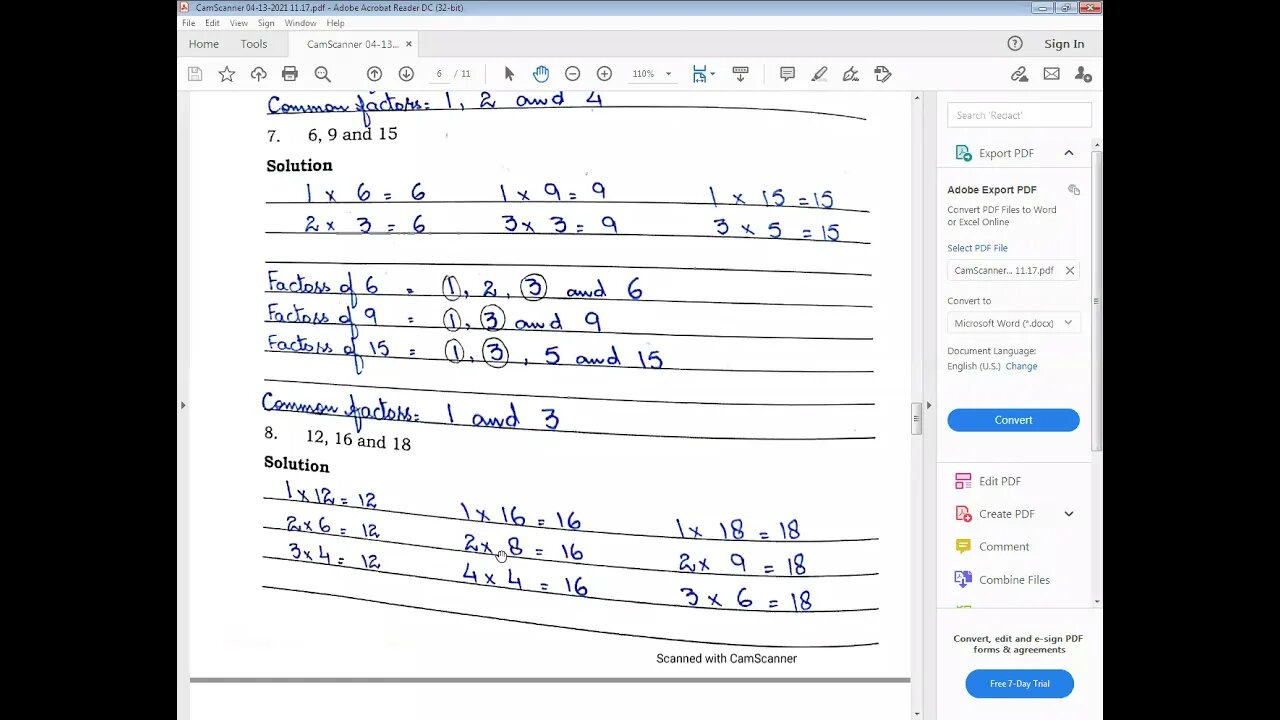 CamScanner 04-13-2021 11.17.pdf - Adobe Acrobat Reader DC (32-bit)
File Edit View Sign Window Help
Home Tools CamScanner 04-13... × Sign In
6 / 11 110%
Common factors: 1, 2 and 4
7. 6, 9 and 15
Solution
1 × 6 = 6 1 × 9 = 9 1 × 15 = 15
2 × 3 = 6 3 × 3 = 9 3 × 5 = 15
Factors of 6 = 1, 2, 3 and 6
Factors of 9 = 1, 3 and 9
Factors of 15 = 1, 3, 5 and 15
Common factors: 1 and 3
8. 12, 16 and 18
Solution
1 × 12 = 12 1 × 16 = 16 1 × 18 = 18
2 × 6 = 12 2 × 8 = 16 2 × 9 = 18
3 × 4 = 12 4 × 4 = 16 3 × 6 = 18
Scanned with CamScanner
Search 'Redact'
Export PDF
Adobe Export PDF
Convert PDF Files to Word
or Excel Online
Select PDF File
CamScanner... 11.17.pdf ×
Convert to
Microsoft Word (*.docx)
Document Language:
English (U.S.) Change
Convert
Edit PDF
Create PDF
Comment
Combine Files
Convert, edit and e-sign PDF
forms & agreements
Free 7-Day Trial